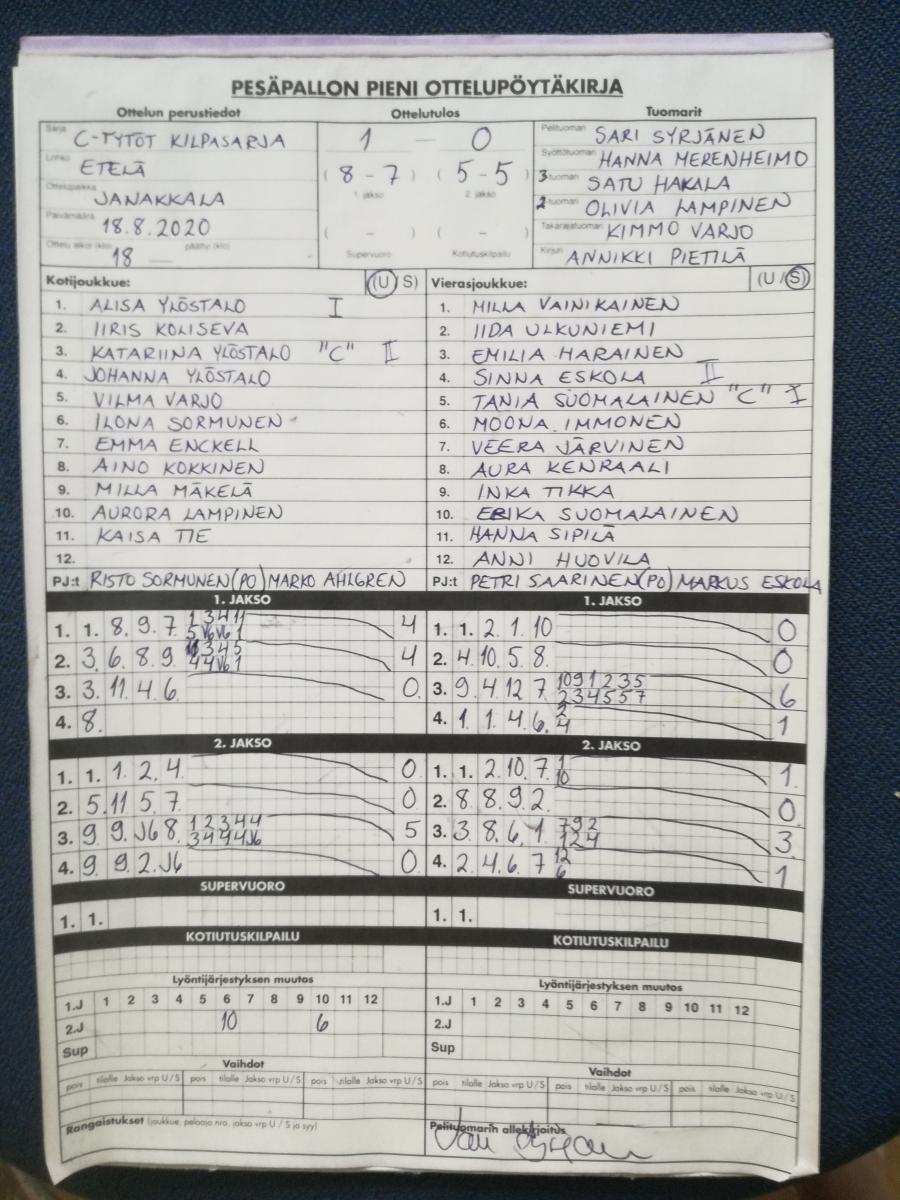 PESÄPALLON PIENI OTTELUPÖYTÄKIRJA
Ottelun perustiedot Ottelutulos Tuomarit
Sarja C-TYTÖT KILPASARJA 1 — 0 Pelituomari SARI SYRJÄNEN
Lohko ETELÄ ( 8 - 7 ) ( 5 - 5 ) Syöttötuomari HANNA MERENHEIMO
1. jakso 2. jakso 3-tuomari SATU HAKALA
Ottelupaikka JANAKKALA 2-tuomari OLIVIA LAMPINEN
Päivämäärä 18.8.2020 ( - ) ( - ) Takarajatuomari KIMMO VARJO
Ottelu alkoi (klo) 18 — päättyi (klo) Supervuoro Kotiutuskilpailu Kirjuri ANNIKKI PIETILÄ
Kotijoukkue: (U/S) Vierasjoukkue: (U/S)
1. ALISA YLÖSTALO I 1. MILLA VAINIKAINEN
2. IIRIS KOLISEVA 2. IIDA ULKUNIEMI
3. KATARIINA YLÖSTALO "C" II 3. EMILIA HARAINEN
4. JOHANNA YLÖSTALO 4. SINNA ESKOLA II
5. VILMA VARJO 5. TANIA SUOMALAINEN "C" I
6. ILONA SORMUNEN 6. MOONA IMMONEN
7. EMMA ENCKELL 7. VEERA JÄRVINEN
8. AINO KOKKINEN 8. AURA KENRAALI
9. MILLA MÄKELÄ 9. INKA TIKKA
10. AURORA LAMPINEN 10. ERIKA SUOMALAINEN
11. KAISA TIE 11. HANNA SIPILÄ
12. 12. ANNI HUOVILA
PJ:t RISTO SORMUNEN (PO) MARKO AHLGREN PJ:t PETRI SAARINEN (PO) MARKUS ESKOLA
1. JAKSO 1. JAKSO
1. 1. 8. 9. 7. 1 3 4 11 4 1. 1. 2. 1. 10 0
5 V6 V6 1
2. 3. 6. 8. 9. 3 4 5 4 2. 4. 10. 5. 8. 0
4 4 V6 1
3. 3. 11. 4. 6. 0 3. 9. 4. 12. 7. 10 9 1 2 3 5 6
2 3 4 5 5 7
4. 8. 4. 1. 1. 4. 6. 2 1
4
2. JAKSO 2. JAKSO
1. 1. 1. 2. 4. 0 1. 1. 2. 10. 7. 1 1
10
2. 5. 11 5. 7. 0 2. 8. 8. 9. 2. 0
3. 9. 9. J6 8. 1 2 3 4 4 5 3. 3. 8. 6. 1. 7 9 2 3
3 4 4 4 J6 1 2 4
4. 9. 9. 2. J6 0 4. 2. 4. 6. 7. 12 1
6
SUPERVUORO SUPERVUORO
1. 1. 1. 1.
KOTIUTUSKILPAILU KOTIUTUSKILPAILU
Lyöntijärjestyksen muutos Lyöntijärjestyksen muutos
1.J 1 2 3 4 5 6 7 8 9 10 11 12 1.J 1 2 3 4 5 6 7 8 9 10 11 12
2.J 10 6 2.J
Sup Sup
Vaihdot Vaihdot
pois tilalle Jakso vrp U/S pois tilalle Jakso vrp U/S pois tilalle Jakso vrp U/S pois tilalle Jakso vrp U/S pois tilalle Jakso vrp U/S pois tilalle Jakso vrp U/S
Rangaistukset (joukkue, pelaaja nro, jakso vrp U / S ja syy) Pelituomarin allekirjoitus